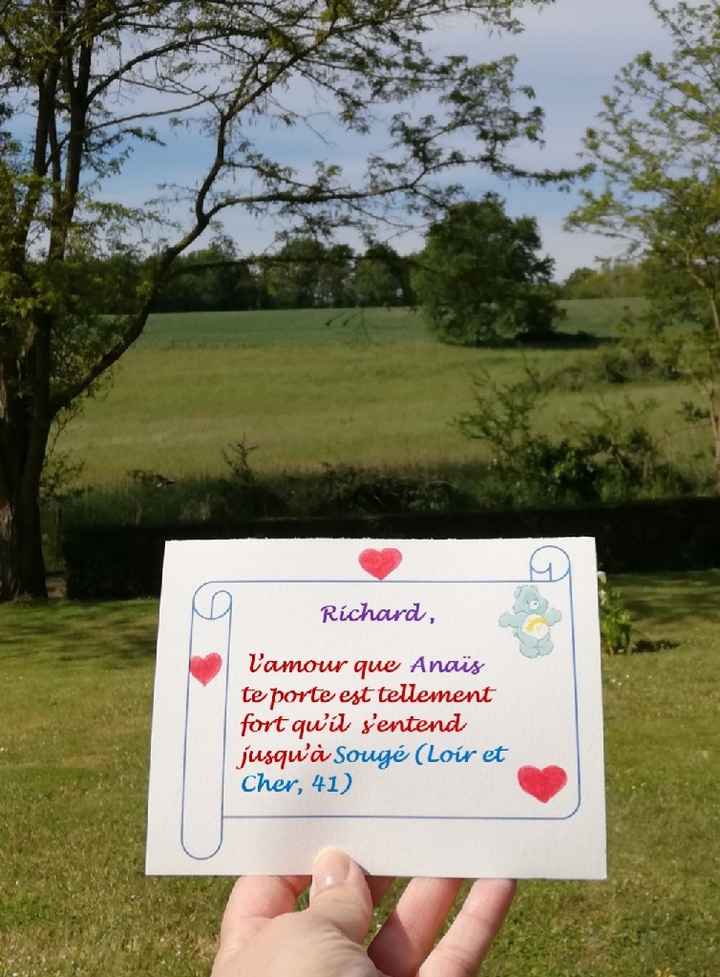 Richard,
l'amour que Anaïs
te porte est tellement
fort qu'il s'entend
jusqu'à Sougé (Loir et
Cher, 41)